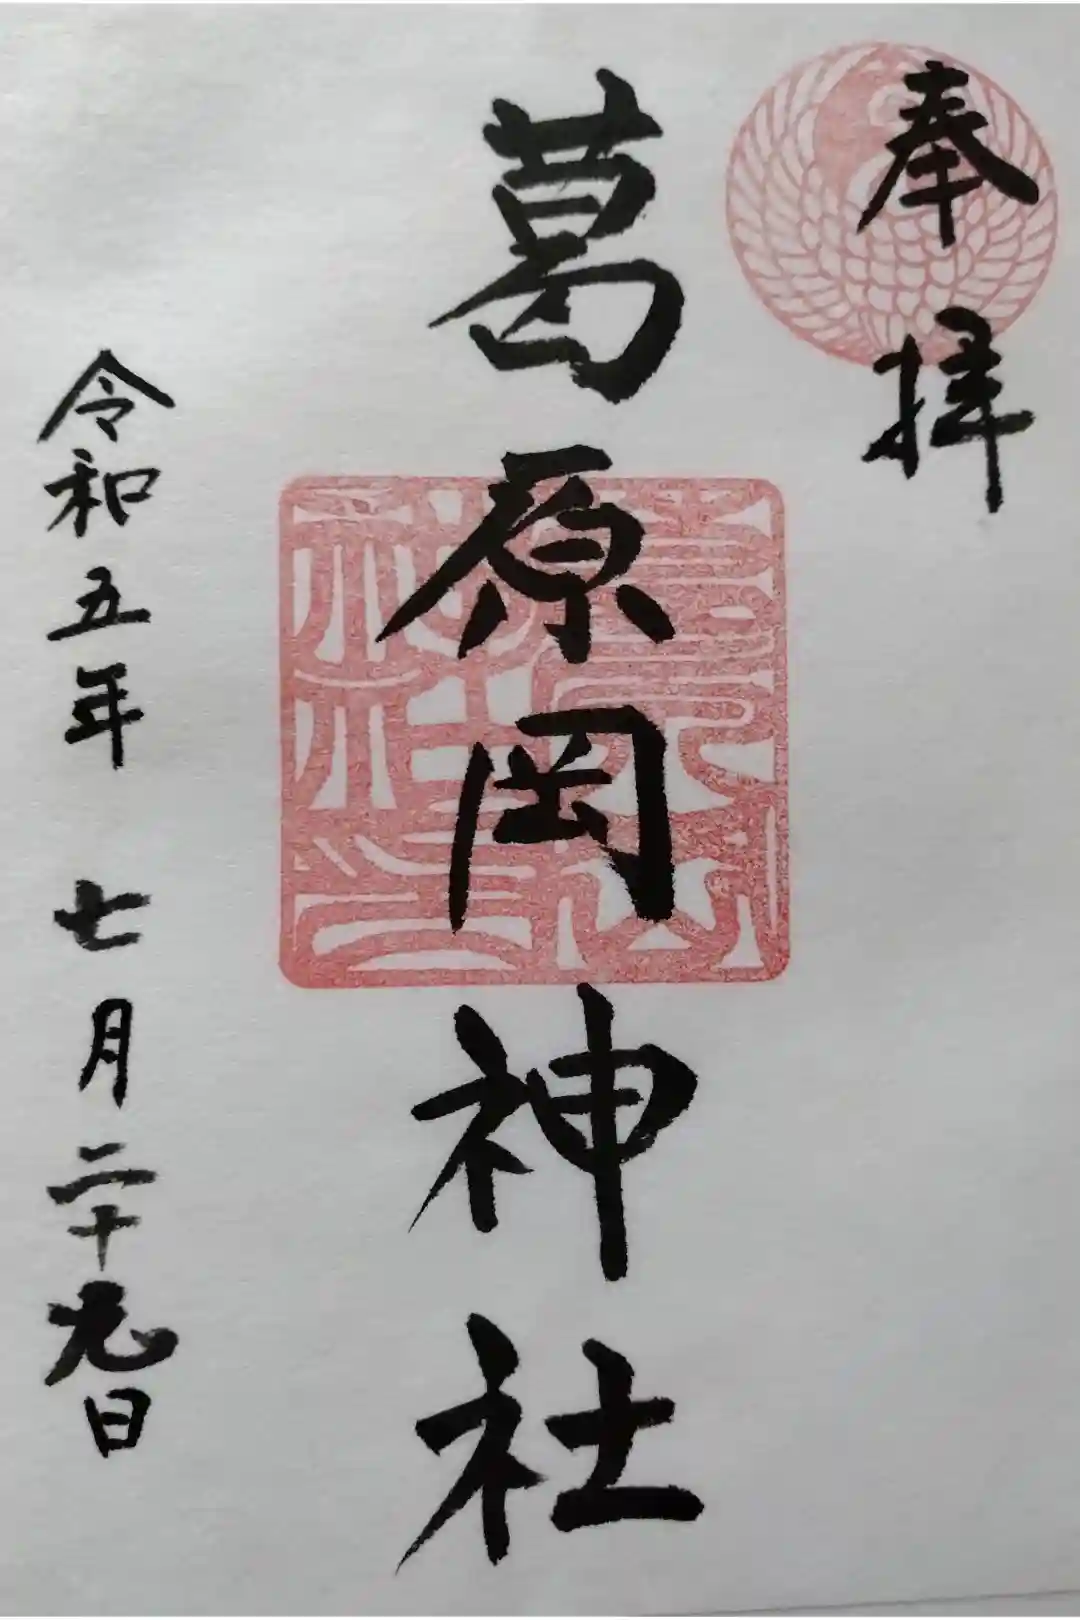 奉拝
葛原岡神社
令和五年 七月二十九日